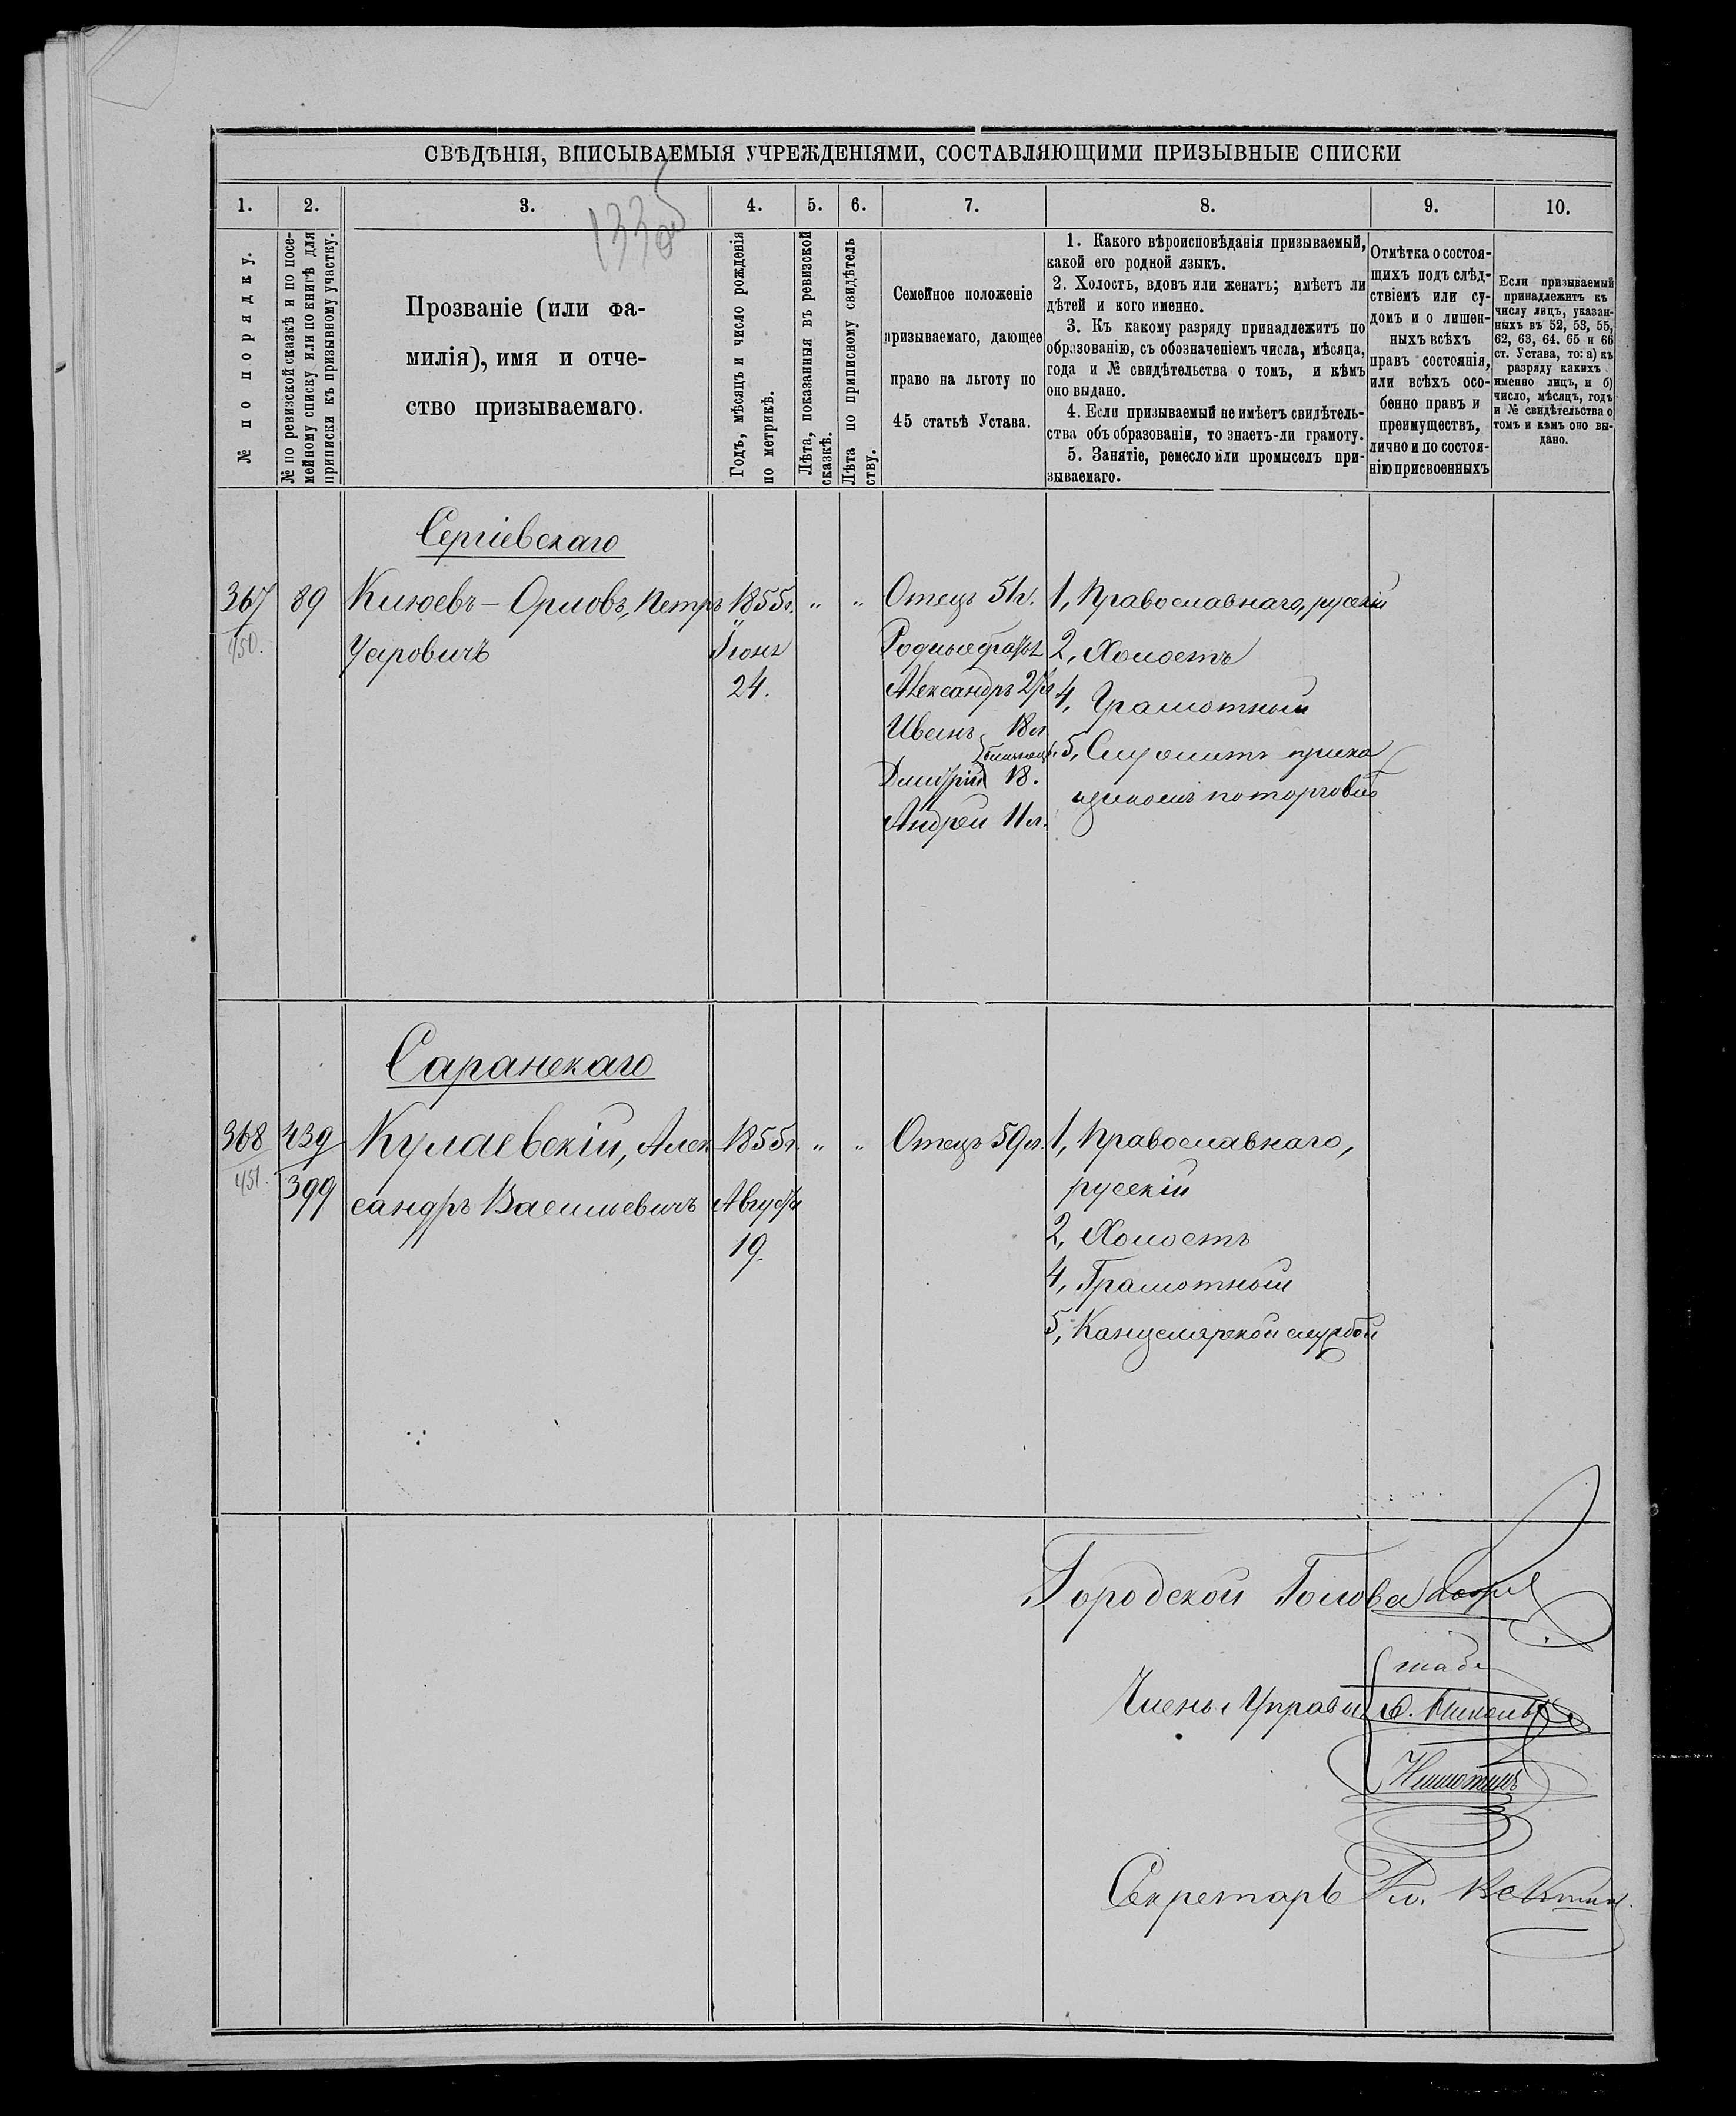 133 об
СВѢДѢНІЯ, ВПИСЫВАЕМЫЯ УЧРЕЖДЕНІЯМИ, СОСТАВЛЯЮЩИМИ ПРИЗЫВНЫЕ СПИСКИ
1. 2. 3. 4. 5. 6. 7. 8. 9. 10.
№ по порядку.
№ по ревизской сказкѣ и по посе-
мейному списку или по книгѣ для
приписки къ призывному участку.
Прозваніе (или фа-
милія), имя и отче-
ство призываемаго.
Годъ, мѣсяцъ и число рожденія
по метрикѣ.
Лѣта, показанныя въ ревизской
сказкѣ.
Лѣта по приписному свидѣтель
ству.
Семейное положеніе
призываемаго, дающее
право на льготу по
45 статьѣ Устава.
1. Какого вѣроисповѣданія призываемый,
какой его родной языкъ.
2. Холостъ, вдовъ или женатъ; имѣетъ ли
дѣтей и кого именно.
3. Къ какому разряду принадлежитъ по
образованію, съ обозначеніемъ числа, мѣсяца,
года и № свидѣтельства о томъ, и кѣмъ
оно выдано.
4. Если призываемый не имѣетъ свидѣтель-
ства объ образованіи, то знаетъ-ли грамоту.
5. Занятіе, ремесло или промыселъ при-
зываемаго.
Отмѣтка о состоя-
щихъ подъ слѣд-
ствіемъ или су-
домъ и о лишен-
ныхъ всѣхъ
правъ состоянія,
или всѣхъ осо-
бенно правъ и
преимуществъ,
лично и по состоя-
нію присвоенныхъ
Если призываемый
принадлежитъ къ
числу лицъ, указан-
ныхъ въ 52, 53, 55,
62, 63, 64, 65 и 66
ст. Устава, то: а) къ
разряду какихъ
именно лицъ, и б)
число, мѣсяцъ, годъ
и № свидѣтельства о
томъ и кѣмъ оно вы-
дано.
Сергіевскаго
367
450.
89
Клюевъ-Орловъ, Петръ
1855г.
Іюня
24.
" "
Отецъ 51г.
Родные братья
Александръ
Иванъ 18л
близнец.
Дмитрій 18.
Андрей 11л.
1, Православнаго, русскій
2, Холостъ
4, Грамотный
5, Служитъ прика
щикомъ по торговлѣ
Саранскаго
368
451.
439
399
Кулаевскій, Алек
сандръ Васильевичъ
1855г.
Августа
19.
" "
Отецъ 59л.
1, Православнаго,
русскій
2, Холостъ
4, Грамотный
5, Канцелярской службой
Городской Голова
Члены Управы
Секретарь